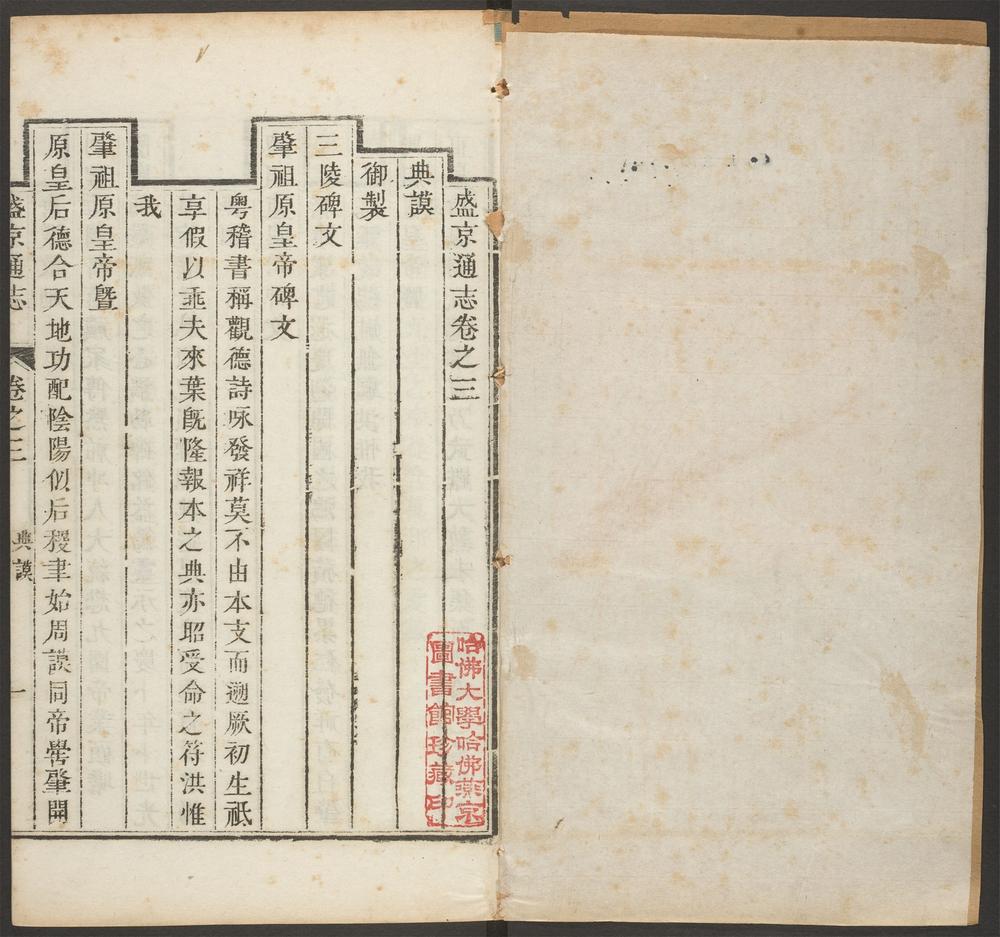 盛京通志卷之三
典謨
御製
三陵碑文
肇祖原皇帝碑文
粵稽書稱觀德詩咏發祥莫不由本支而遡厥初生祇
享假以垂夫來葉旣隆報本之典亦昭受命之符洪惟
我
肇祖原皇帝曁
原皇后德合天地功配陰陽似后稷肇始周謨同帝嚳肇開
盛京通志 卷之三 典謨 一
哈佛大學哈佛燕京
圖書館珍藏印